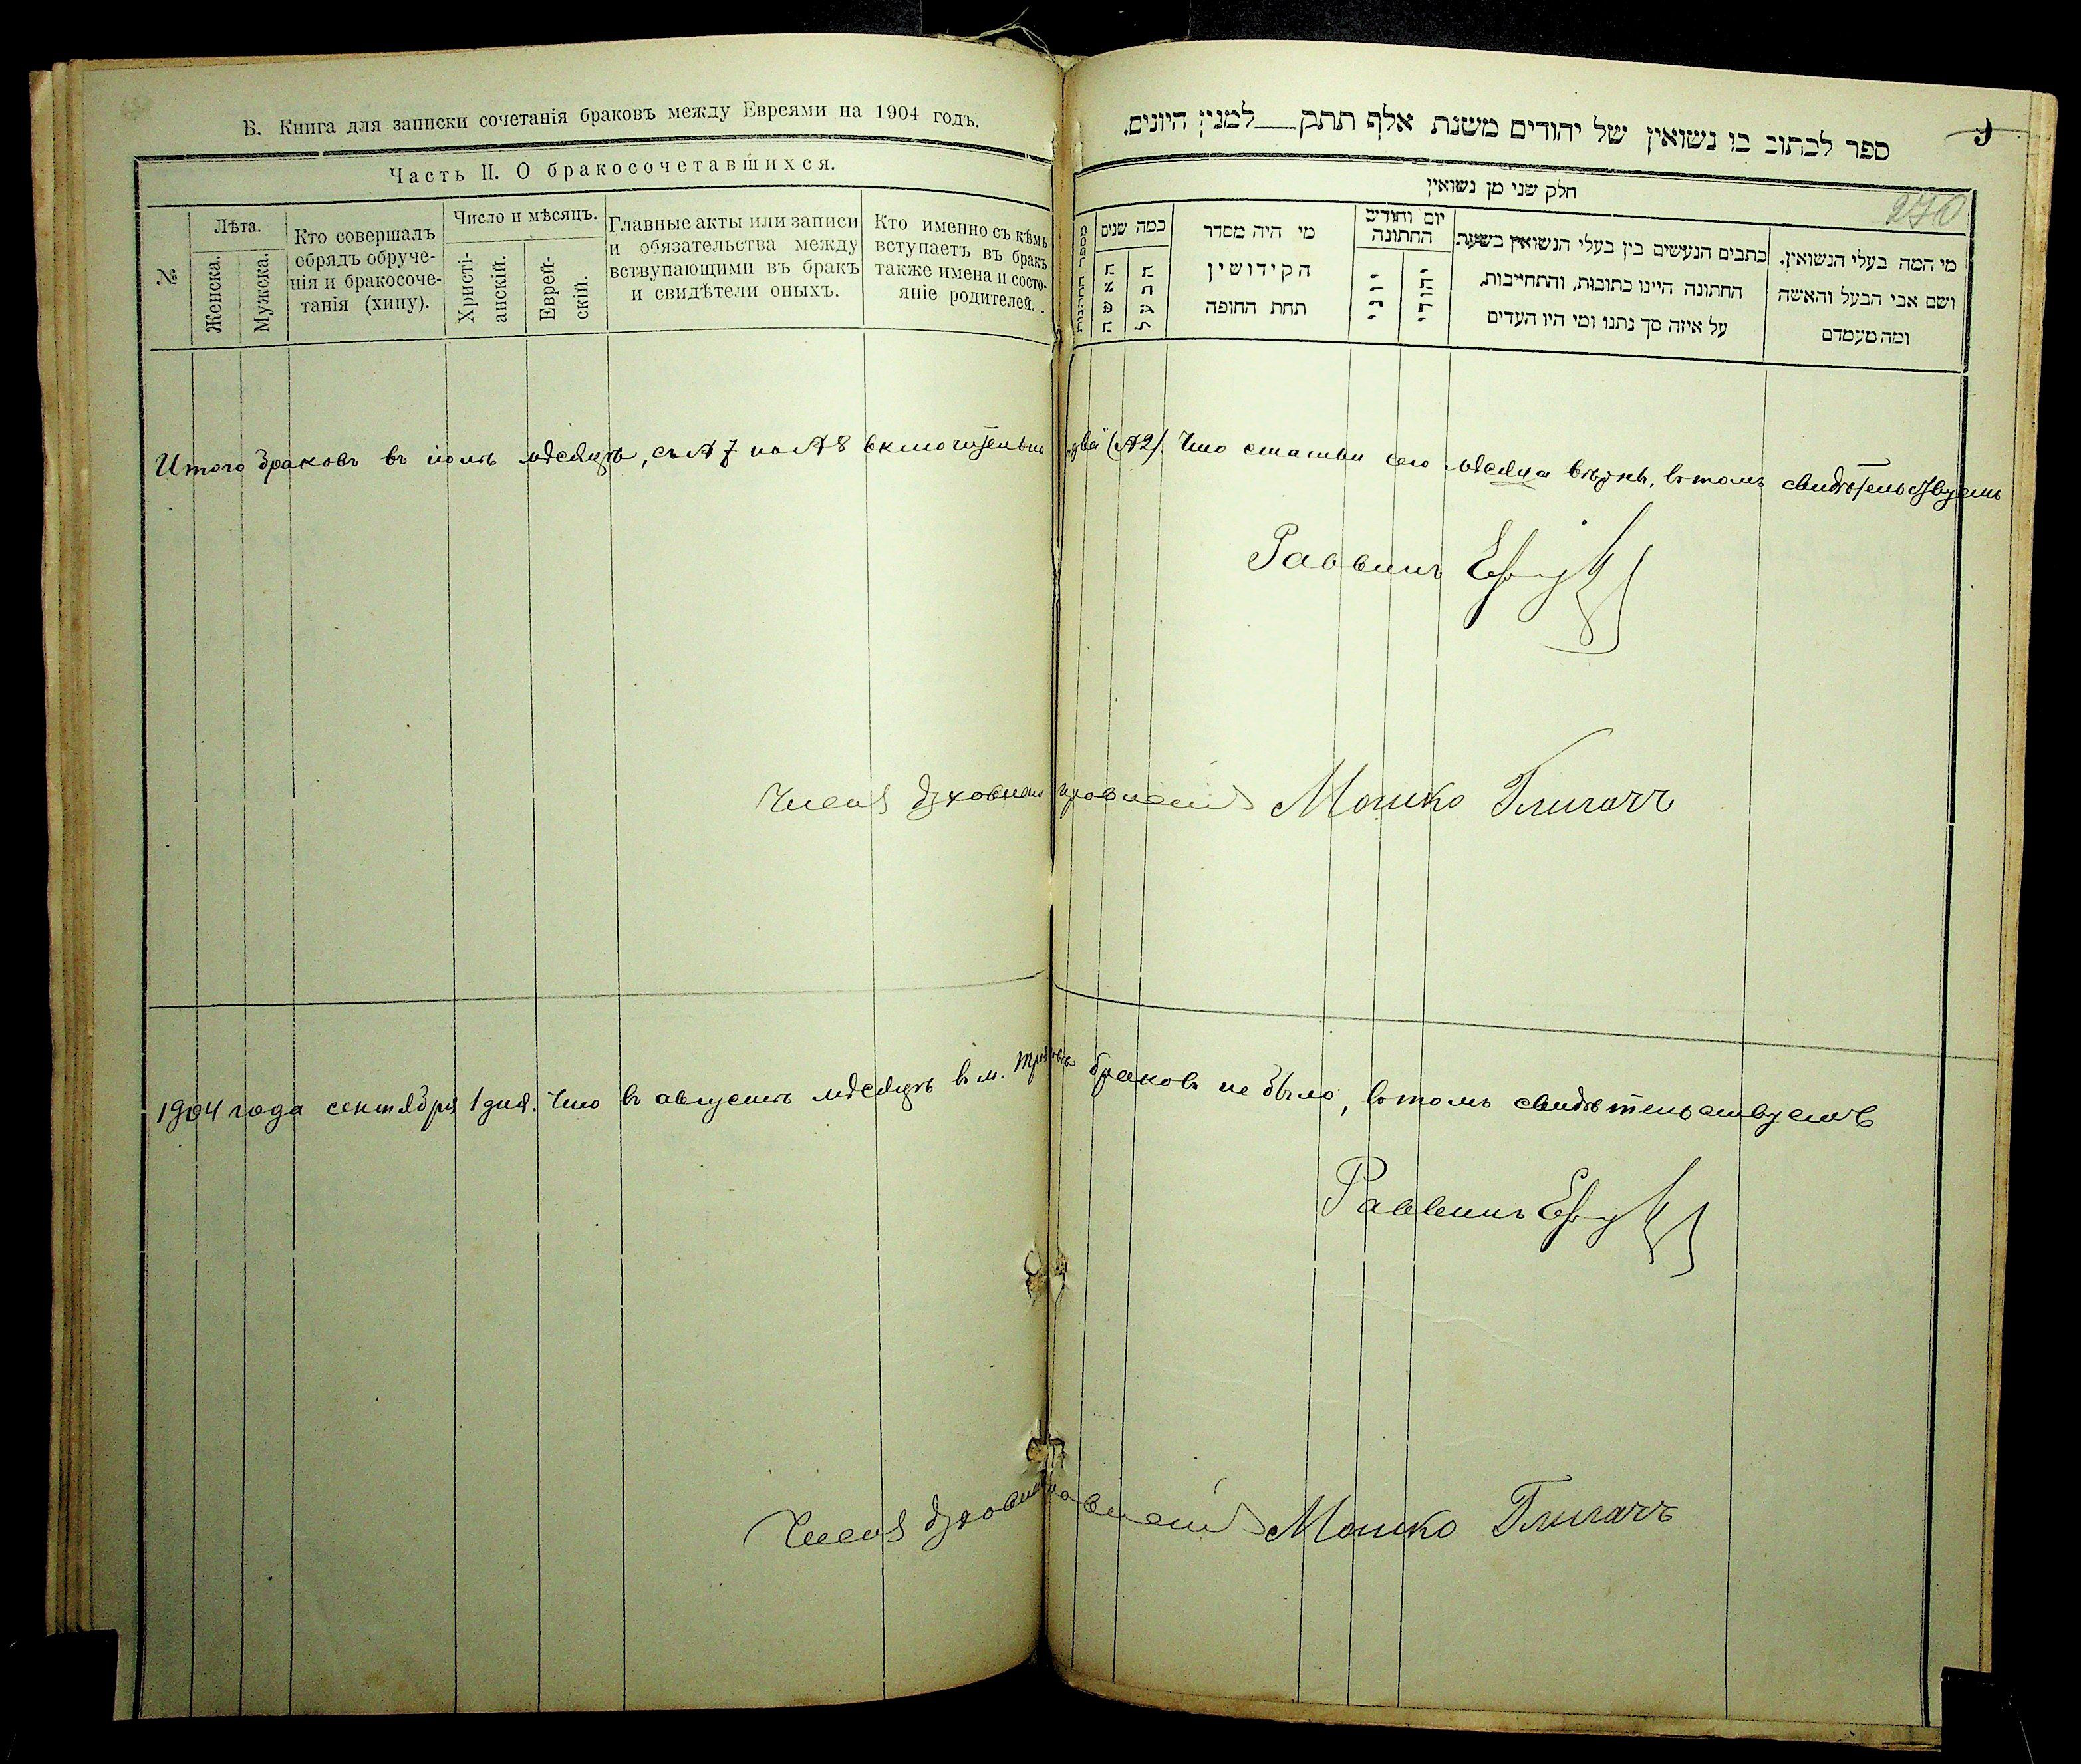 Б. Книга для записки сочетанія браковъ между Евреями на 1904 годъ.
Часть II. О бракосочетавшихся.
№
Лѣта.
Женска.
Мужска.
Кто совершалъ
обрядъ обруче-
нія и бракосоче-
танія (хипу).
Число и мѣсяцъ.
Христі-
анскій.
Еврей-
скій.
Главные акты или записи
и обязательства между
вствупающими въ бракъ
и свидѣтели оныхъ.
Кто именно съ кѣмъ
вступаетъ въ бракъ
также имена и состо-
яніе родителей.
ספר לכתוב בו נשואין של יהודים משנת אלף תתק למנין היונים.
חלק שני מן נשואין
270
מספר החתונות
כמה שנים
האשה
הבעל
מי היה מסדר
הקידושין
תחת החופה
יום וחודש
החתונה
יוני
יהודי
כתבים הנעשים בין בעלי הנשואין בשעת
החתונה היינו כתובות, והתחייבות,
על איזה סך נתנו ומי היו העדים
מי המה בעלי הנשואין.
ושם אבי הבעל והאשה
ומה מעמדם
Итого браковъ въ іюлѣ мѣсяцѣ, съ № 7 по № 8 включительно два (№ 2). Что статьи сего мѣсяца вѣрны, въ томъ свидѣтельствуемъ
Раввинъ
Членъ духовнаго правленія Мошко
1904 года сентября 1 дня. Что въ августѣ мѣсяцѣ въ м. браковъ не было, въ томъ свидѣтельствуемъ
Раввинъ
Членъ духовнаго правленія Мошко